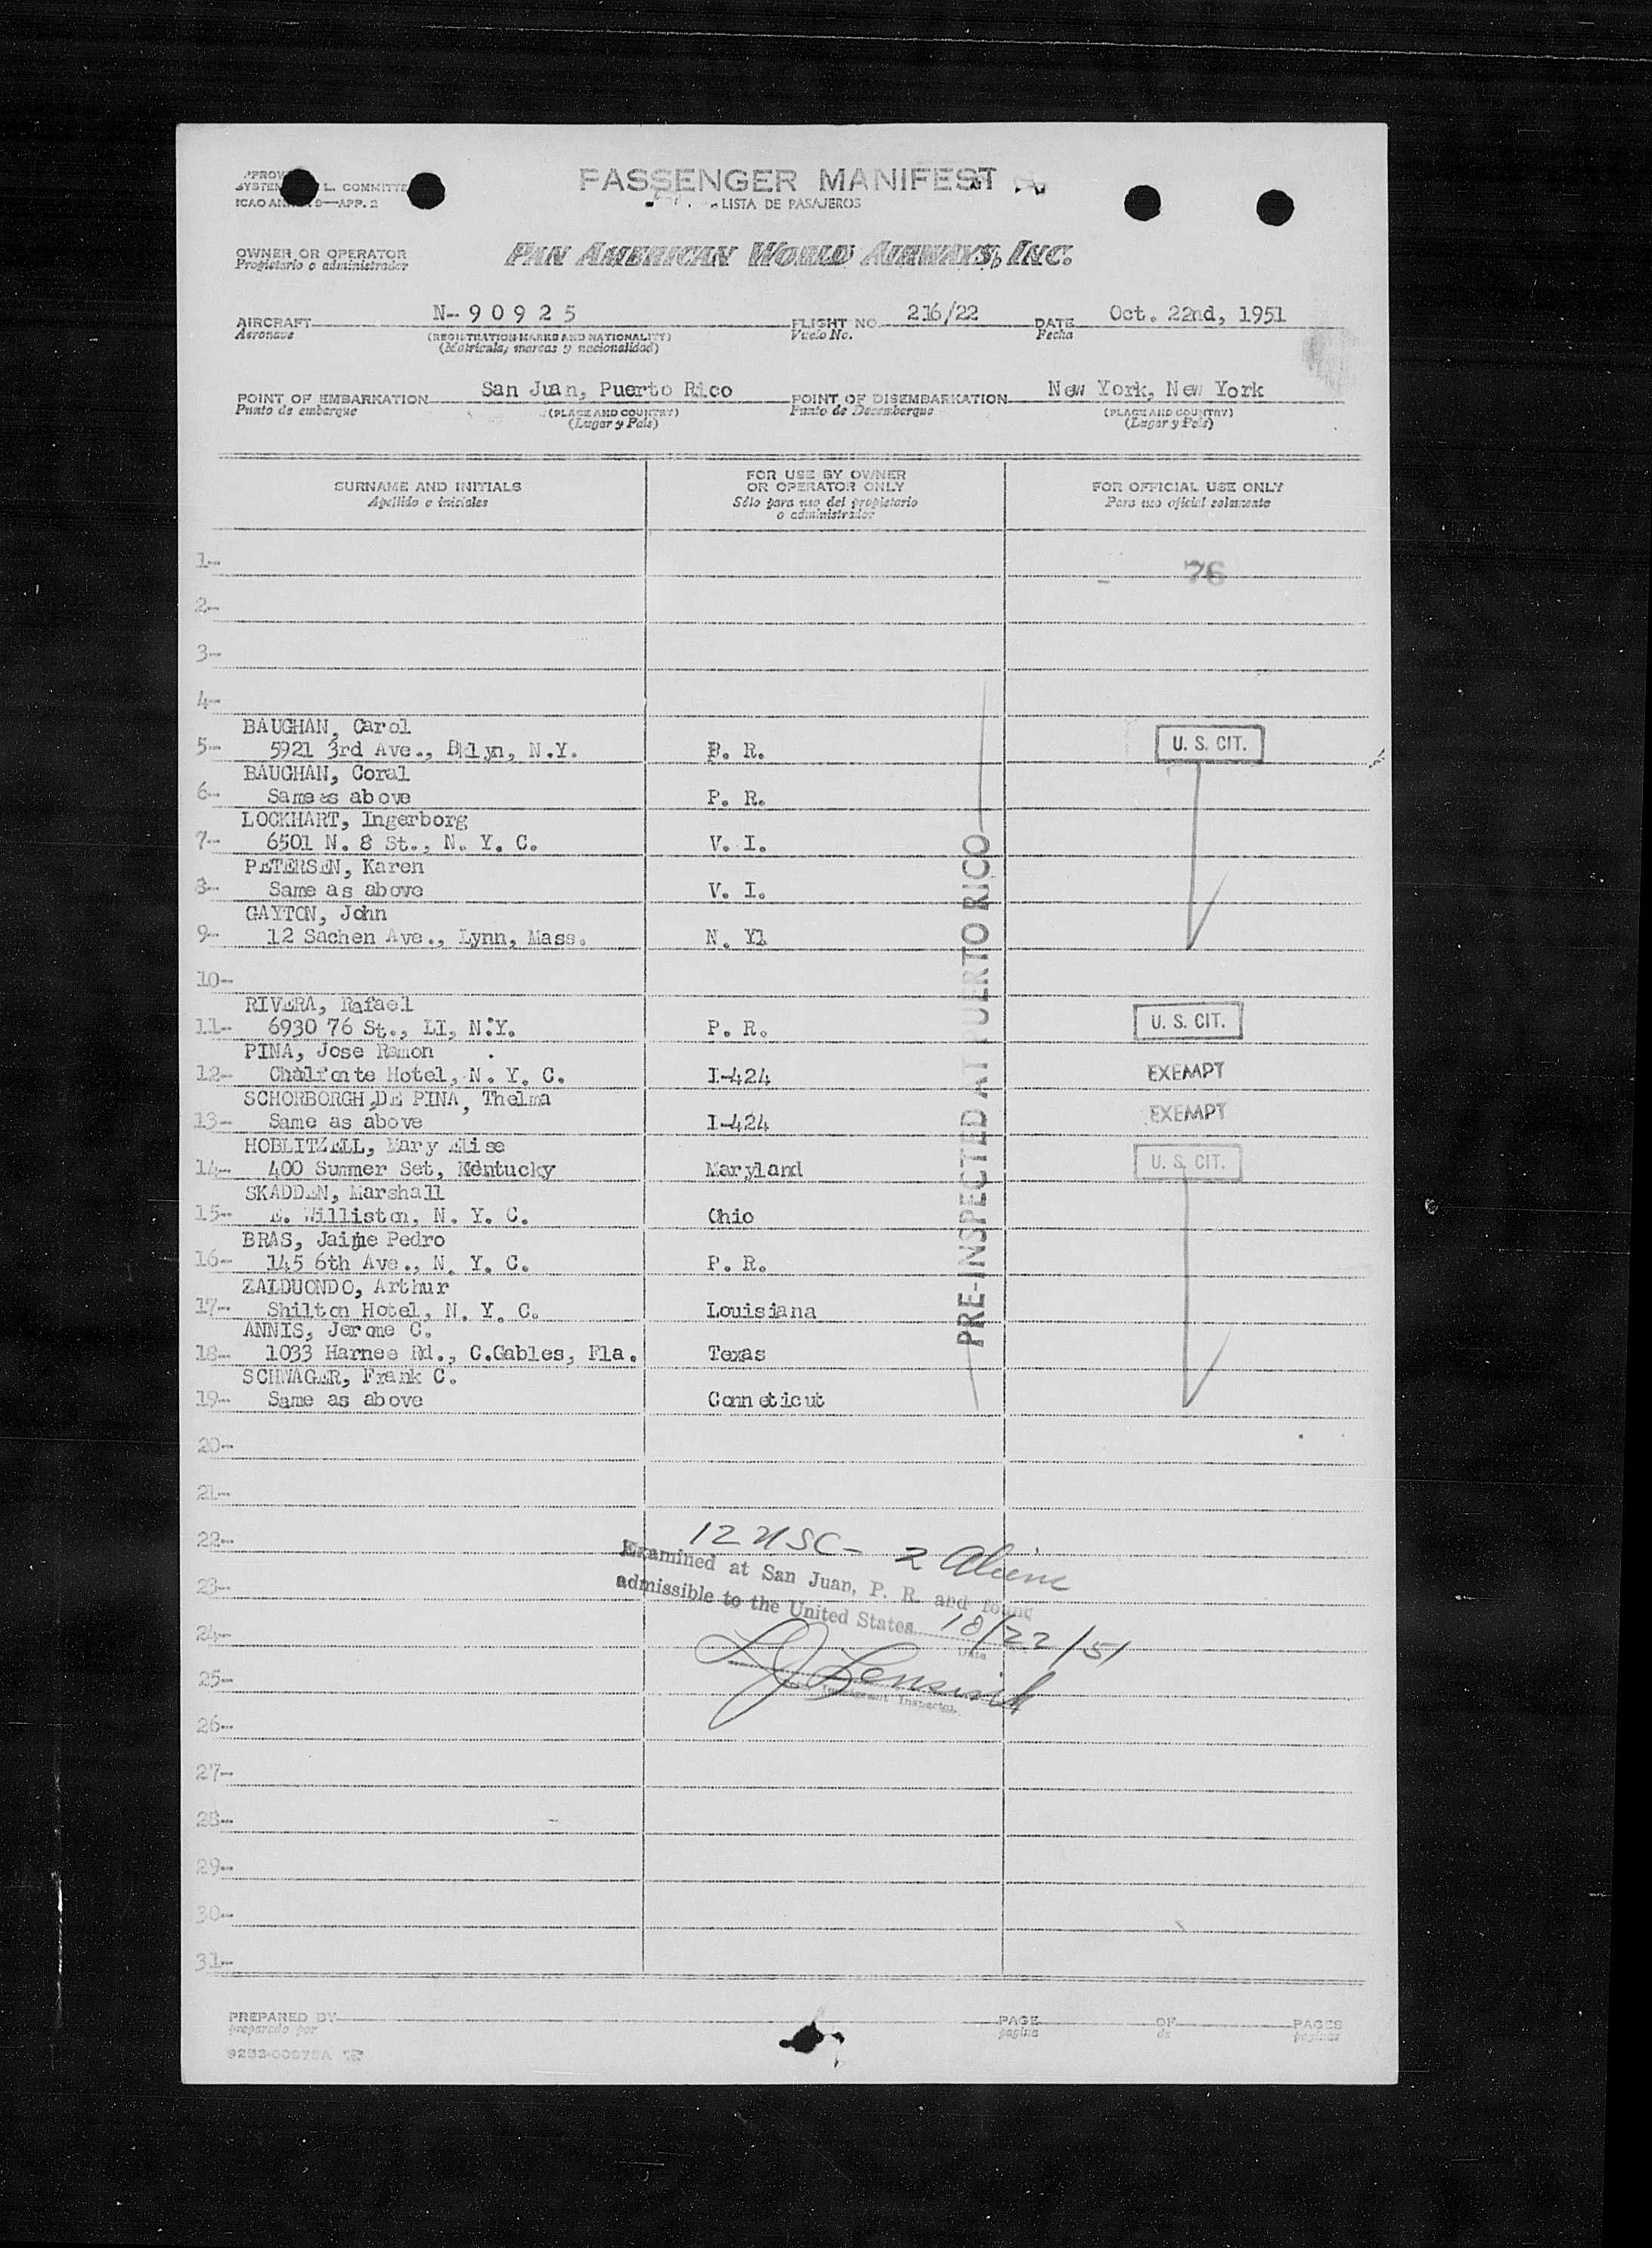 PASSENGER MANIFEST
LISTA DE PASAJEROS
L. COMMITTE
ICAO 9—APP. 2
OWNER OR OPERATOR
Propietario o administrador
PAN AMERICAN WORLD AIRWAYS, INC.
AIRCRAFT N-90925 FLIGHT NO. 216/22 DATE Oct. 22nd, 1951
Aeronave (REGISTRATION MARKS AND NATIONALITY) Vuelo No. Fecha
(Matricula, marcas y nacionalidad)
POINT OF EMBARKATION San Juan, Puerto Rico POINT OF DISEMBARKATION New York, New York
Punto de embarque (PLACE AND COUNTRY) Punto de Desembarque (PLACE AND COUNTRY)
(Lugar y País) (Lugar y País)
SURNAME AND INITIALS FOR USE BY OWNER OR OPERATOR ONLY FOR OFFICIAL USE ONLY
Apellido e iniciales Sólo para uso del propietario o administrador Para uso oficial solamente
1-- 76
2--
3--
4--
BAUGHAN, Carol
5-- 5921 3rd Ave., Bklyn, N.Y. P. R. U. S. CIT.
BAUGHAN, Coral
6-- Same as above P. R.
LOCKHART, Ingerborg
7-- 6501 N. 8 St., N. Y. C. V. I.
PETERSEN, Karen
8-- Same as above V. I.
GAYTON, John
9-- 12 Sachen Ave., Lynn, Mass. N. Yl
10--
RIVERA, Rafael
11-- 6930 76 St., LI, N.Y. P. R. U. S. CIT.
PINA, Jose Ramon
12-- Chalfonte Hotel, N. Y. C. I-424 EXEMPT
SCHORBORGH DE PINA, Thelma
13-- Same as above I-424 EXEMPT
HOBLITZELL, Mary Elise
14-- 400 Summer Set, Kentucky Maryland U. S. CIT.
SKADDEN, Marshall
15-- E. Williston, N. Y. C. Ohio
BRAS, Jaime Pedro
16-- 145 6th Ave., N. Y. C. P. R.
ZALDUONDO, Arthur
17-- Shilton Hotel, N. Y. C. Louisiana
ANNIS, Jerome C.
18-- 1033 Harnee Rd., C.Gables, Fla. Texas
SCHWAGER, Frank C.
19-- Same as above Conneticut
PRE-INSPECTED AT PUERTO RICO
20--
21--
22-- 12 USC - 2 Aliens
23-- Examined at San Juan, P. R. and found
admissible to the United States 10/22/51
24-- Date
25--
Immigrant Inspector.
26--
27--
28--
29--
30--
31--
PREPARED BY PAGE OF PAGES
preparado por pagina de paginas